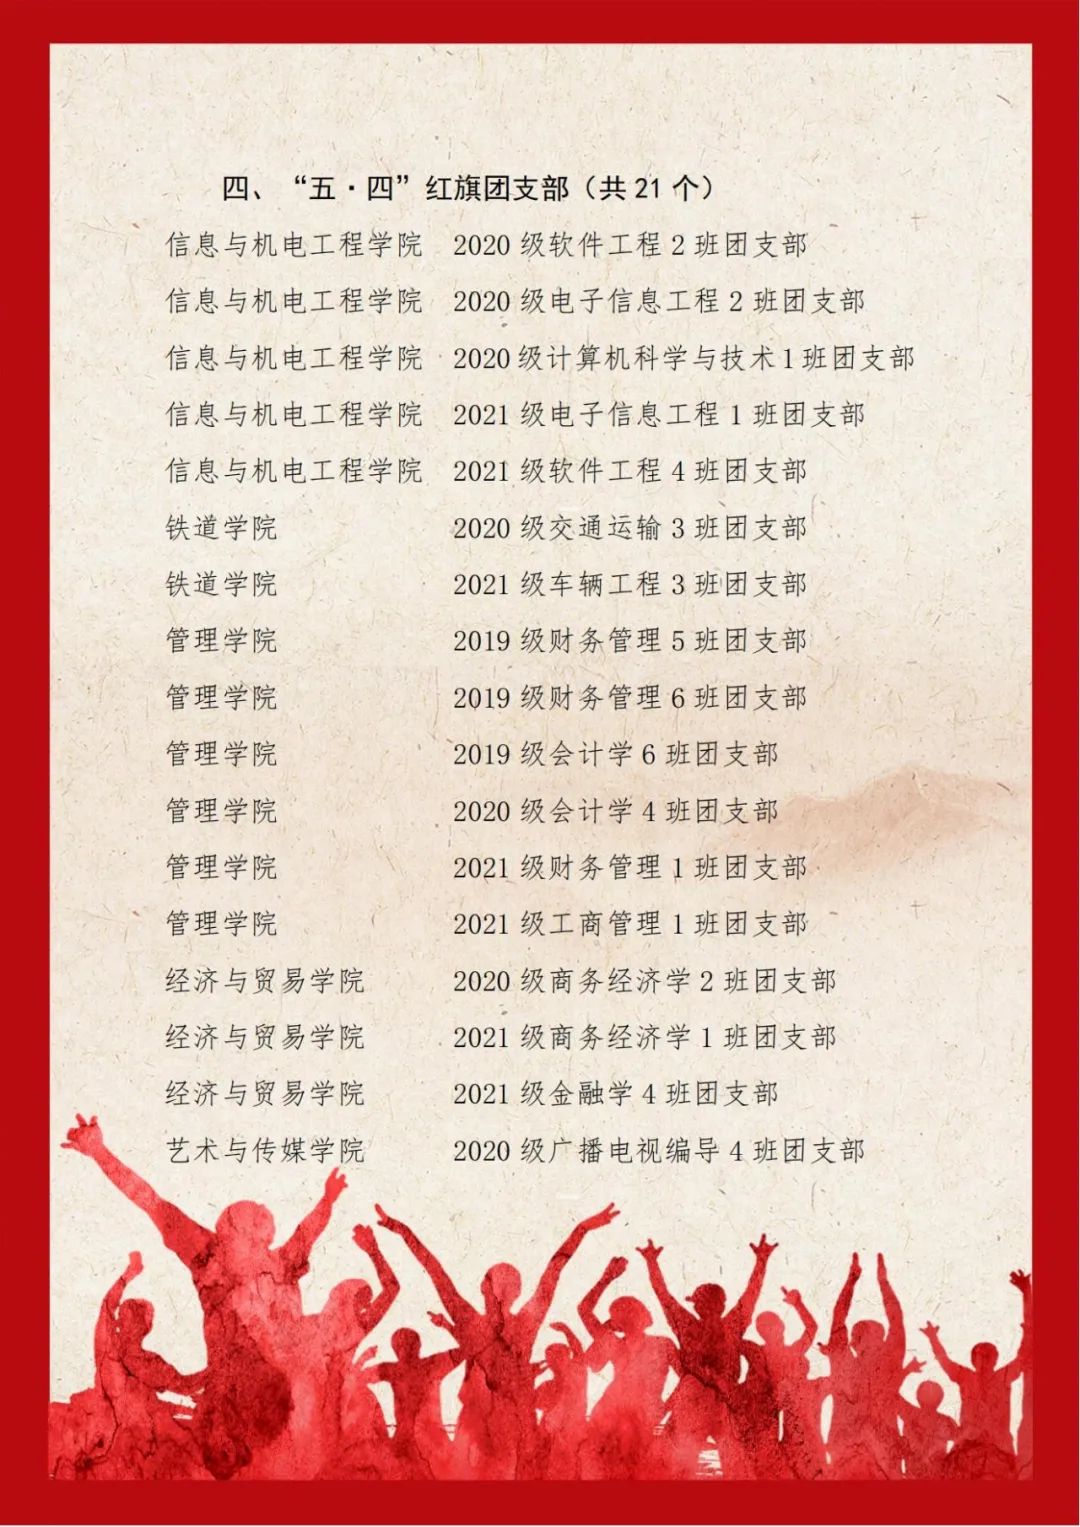 四、“五·四”红旗团支部（共21个）
信息与机电工程学院 2020级软件工程2班团支部
信息与机电工程学院 2020级电子信息工程2班团支部
信息与机电工程学院 2020级计算机科学与技术1班团支部
信息与机电工程学院 2021级电子信息工程1班团支部
信息与机电工程学院 2021级软件工程4班团支部
铁道学院 2020级交通运输3班团支部
铁道学院 2021级车辆工程3班团支部
管理学院 2019级财务管理5班团支部
管理学院 2019级财务管理6班团支部
管理学院 2019级会计学6班团支部
管理学院 2020级会计学4班团支部
管理学院 2021级财务管理1班团支部
管理学院 2021级工商管理1班团支部
经济与贸易学院 2020级商务经济学2班团支部
经济与贸易学院 2021级商务经济学1班团支部
经济与贸易学院 2021级金融学4班团支部
艺术与传媒学院 2020级广播电视编导4班团支部